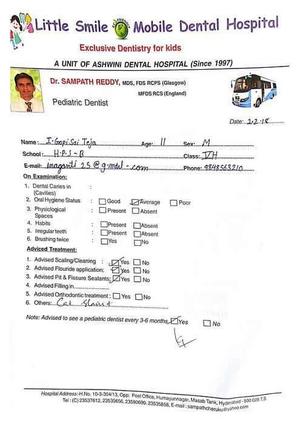 Little Smile Mobile Dental Hospital
Exclusive Dentistry for kids
A UNIT OF ASHWINI DENTAL HOSPITAL (Since 1997)
Dr. SAMPATH REDDY, MDS, FDS RCPS (Glasgow)
MFDS RCS (England)
Pediatric Dentist
Date: 2-2-18
Name: I-Gopi Sai Teja Age: 11 Sex: M
School: H-P-S-R Class: VII
E-mail: inaganti 25@g-mail-com Phone: 9848563210
On Examination:
1. Dental Caries in :
(Cavities)
2. Oral Hygiene Status : Good Average Poor
3. Physiological : Present Absent
Spaces
4. Habits : Present Absent
5. Irregular teeth : Present Absent
6. Brushing twice : Yes No
Advised Treatment:
1. Advised Scaling/Cleaning : Yes No
2. Advised Flouride application: Yes No
3. Advised Pit & Fissure Sealants: Yes No
4. Advised Filling in
5. Advised Orthodontic treatment : Yes No
6. Others:
Note: Advised to see a pediatric dentist every 3-6 months Yes No
Hospital Address: H.No. 10-3-304/13, Opp. Post Office, Humayunnagar, Masab Tank, Hyderabad - 500 028 T.S
Tel : (C) 23537612, 23535656, 23590696, 23535858, E-mail : sampathcheruku@yahoo.com